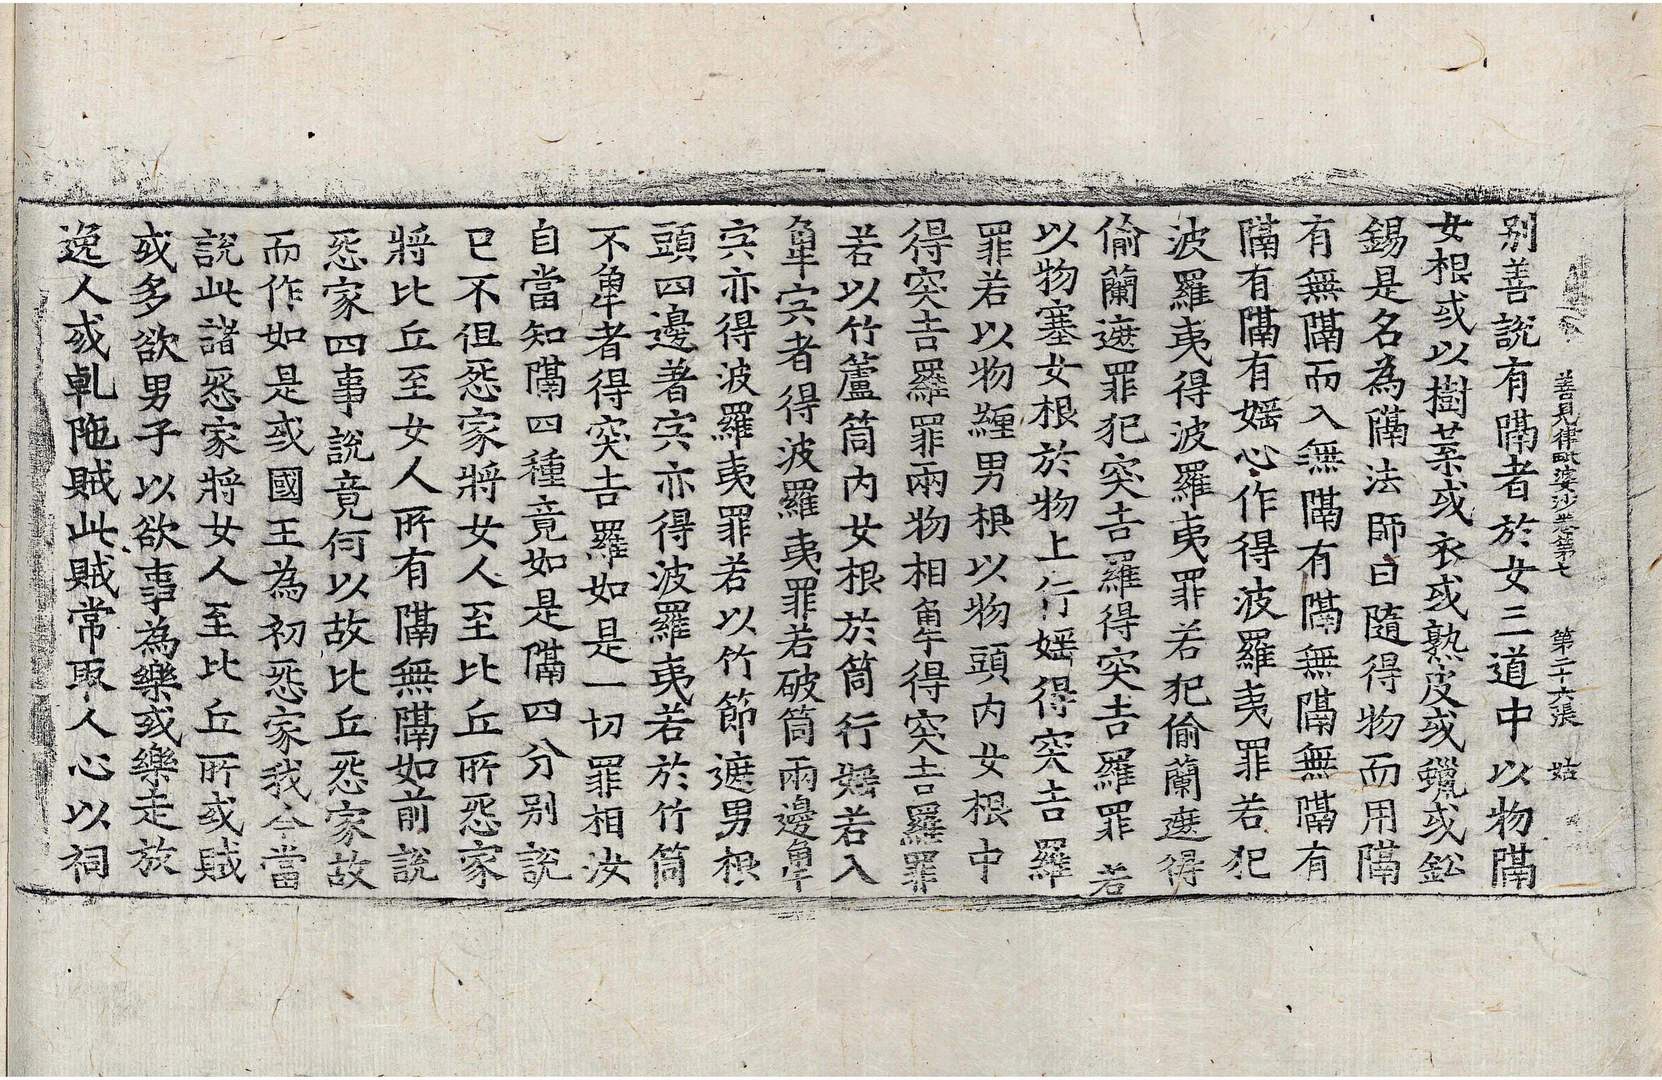 善見律毗婆沙卷第七 第二十六張 姑
别善說有隔者於女三道中以物隔
女根或以樹葉或衣或熟皮或蠟或鈆
錫是名為隔法師曰隨得物而用隔
有無隔而入無隔有隔無隔無隔有
隔有隔有婬心作得波羅夷罪若犯
波羅夷得波羅夷罪若犯偷蘭遮得
偷蘭遮罪犯突吉羅得突吉羅罪若
以物塞女根於物上行婬得突吉羅
罪若以物纏男根以物頭内女根中
得突吉羅罪兩物相觸得突吉羅罪
若以竹蘆筒内女根於筒行婬若入
觸肉者得波羅夷罪若破筒兩邊觸
肉亦得波羅夷罪若以竹節遮男根
頭四邊著肉亦得波羅夷若於竹筒
不觸者得突吉羅如是一切罪相汝
自當知隔四種竟如是隔四分别說
已不但怨家將女人至比丘所怨家
將比丘至女人所有隔無隔如前說
怨家四事說竟何以故比丘怨家故
而作如是或國王為初怨家我今當
說此諸怨家將女人至比丘所或賊
或多欲男子以欲事為樂或樂走放
逸人或乹陁賊此賊常取人心以祠